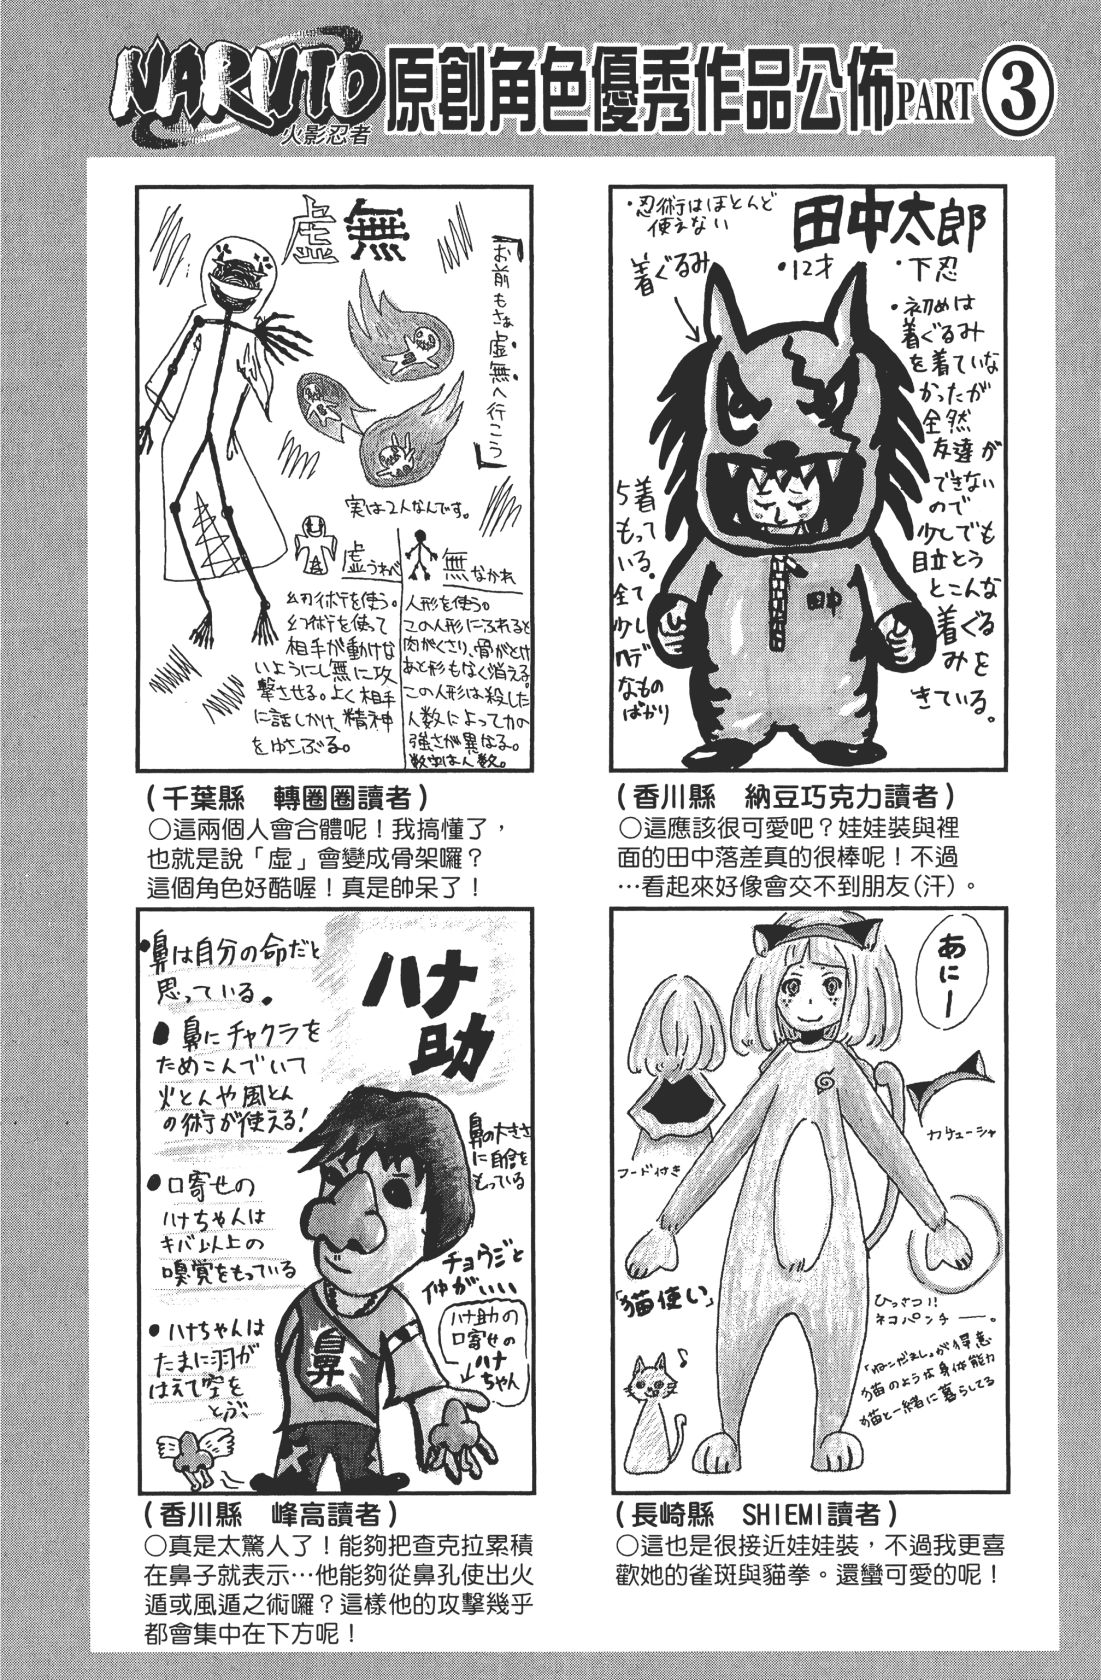 NARUTO
火影忍者
原創角色優秀作品公佈PART③
虛無
「お前もさぁ虚無へ行こう」
実は2人なんです。
虚うわべ
幻術を使う。
幻術を使って
相手が動けな
いようにし無に攻
撃させる。よく相手
に話しかけ、精神
をゆさぶる。
無なかれ
人形を使う。
この人形にふれると
肉がくさり、骨がとけ
あと形もなく消える。
この人形は殺した
人数によって力の
強さが異なる。
(千葉縣 轉圈圈讀者)
○這兩個人會合體呢！我搞懂了，
也就是說「虛」會變成骨架囉？
這個角色好酷喔！真是帥呆了！
田中太郎
・忍術はほとんど
使えない
・12才
・下忍
着ぐるみ
・初めは
着ぐるみ
を着ていな
かったが
全然
友達が
できない
ので
少しでも
目立とう
とこんな
着ぐる
みを
きている。
5着
もって
いる。
全て
少し
ハデ
なもの
ばかり
田中
(香川縣 納豆巧克力讀者)
○這應該很可愛吧？娃娃裝與裡
面的田中落差真的很棒呢！不過
…看起來好像會交不到朋友(汗)。
ハナ助
・鼻は自分の命だと
思っている。
●鼻にチャクラを
ためこんでいて
火とんや風とん
の術が使える！
●口寄せの
ハナちゃんは
キバ以上の
嗅覚をもっている
●ハナちゃんは
たまに羽が
はえて空を
とぶ
鼻の大きさ
に自信を
もっている
チョウジと
仲がいい
ハナ助の
口寄せの
ハナ
ちゃん
鼻
(香川縣 峰高讀者)
○真是太驚人了！能夠把查克拉累積
在鼻子就表示…他能夠從鼻孔使出火
遁或風遁之術囉？這樣他的攻擊幾乎
都會集中在下方呢！
あにー
カチューシャ
フード付き
「猫使い」
ひっさつ!!
ネコパンチ――。
「ねこだまし」が得意
猫のような身体能力
猫と一緒に暮らしてる
(長崎縣 SHIEMI讀者)
○這也是很接近娃娃裝，不過我更喜
歡她的雀斑與貓拳。還蠻可愛的呢！